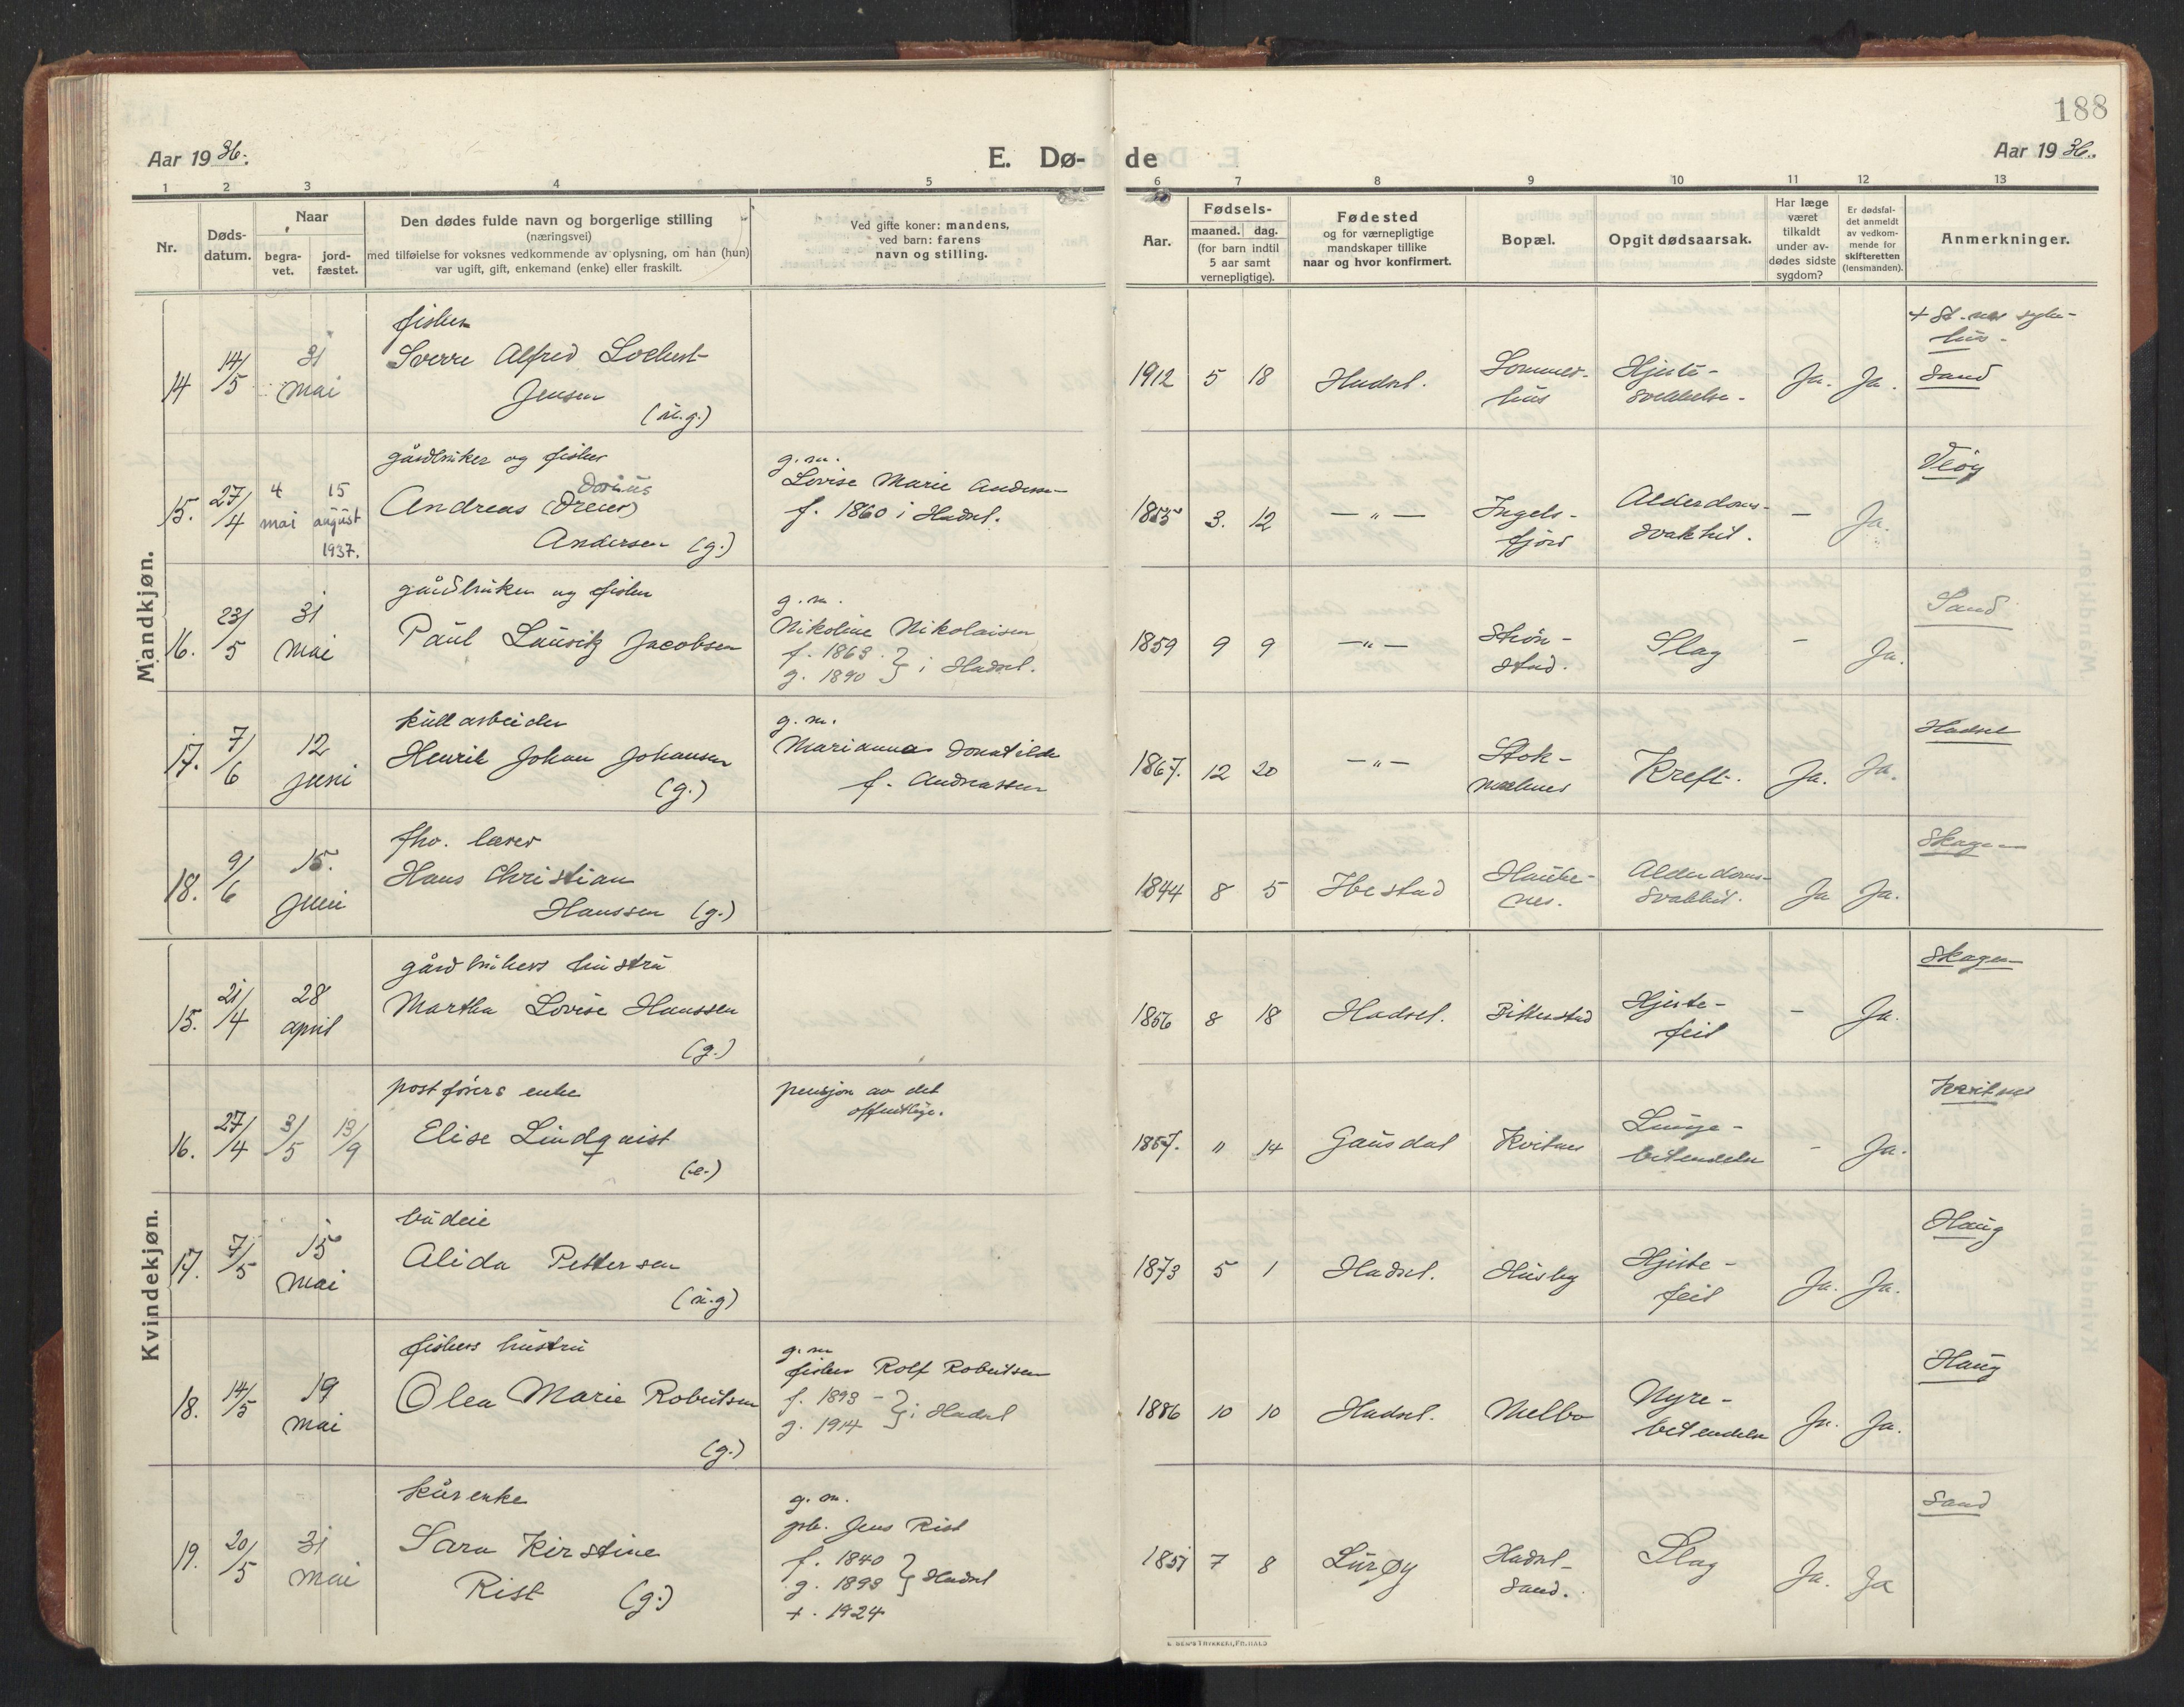 188
Aar 1936.
E. Dø-
de
Aar 1936.
1 2 3 4 5 6 7 8 9 10 11 12 13
Nr.
Døds-
datum.
Naar
begra-
vet.
jord-
fæstet.
Den dødes fulde navn og borgerlige stilling
(næringsvei)
med tilføielse for voksnes vedkommende av oplysning, om han (hun)
var ugift, gift, enkemand (enke) eller fraskilt.
Ved gifte koner: mandens,
ved barn: farens
navn og stilling.
Aar.
Fødsels-
maaned. dag.
(for barn indtil
5 aar samt
vernepligtige).
Fødested
og for værnepligtige
mandskaper tillike
naar og hvor konfirmert.
Bopæl.
Opgit dødsaarsak.
Har læge
været
tilkaldt
under av-
dødes sidste
sygdom?
Er dødsfal-
det anmeldt
av vedkom-
mende for
skifteretten
(lensmanden).
Anmerkninger.
Mandkjøn.
14
14/5
31
mai
fisker
Sverre Alfred
Jensen
(u.g.)
1912 5 18 Hadsel.
Sommer-
hus
Hjerte-
svekkelse.
Ja. Ja.
Sand
15.
27/4
4
mai
15
august
1937.
gårdbruker og fisker
Dorius
Andreas (Dreier)
Andersen (g.)
g.m.
Lovise Marie Andersen
f. 1860 i Hadsel.
1855 3. 12 —"—
Ingels-
fjord
Alderdoms-
svakhet.
— Ja.
16.
23/5
31
mai
gårdbruker og fisker
Paul Lauritz Jacobsen
g.m.
Nikoline Nikolaisen
f. 1863
g. 1890 } i Hadsel.
1859 9 9 —"—
Skøn-
stad.
Slag
— Ja.
Sand
17.
7/6
12
juni
kullarbeider
Henrik Johan Johansen
(g.)
g.m.
Marianna Donatilde
f. Andreassen
1867. 12 20 —"—
Stok-
marknes
Kreft.
Ja. Ja.
Hadsel
18.
9/6
15.
juni
fhv. lærer
Hans Christian
Hanssen (g.)
1844 8 5 Ibestad
Hauke-
nes.
Alderdoms-
svakhet.
Ja Ja.
Skagen
Kvindekjøn.
15.
21/4
28
april
gårdbrukers hustru
Martha Lovise Hanssen
(g.)
1856 8 18 Hadsel.
Hjerte-
feil
- Ja.
Skagen
16.
27/4
3/5
13/9
postførers enke
Elise Lindqvist
(e.)
pensjon av det
offentlige.
1857. " 14 Gausdal Kvitnes
Lunge-
betendelse
- Ja.
Kvitnes
17.
7/5
15
mai
budeie
Alida Pettersen
(u.g)
1873 5 1 Hadsel. Husby
Hjerte-
feil
Ja. Ja.
Haug
18.
14/5
19
mai
fiskers hustru
Olea Marie Robertsen
(g.)
g.m
fisker Rolf Robertsen
f. 1893
g. 1914 } i Hadsel
1886 10 10 Hadsel. Melbo
Nyre-
betendelse
Ja. Ja.
Haug
19.
20/5
31
mai
kårenke
Sara Kirstine
Rist (g.)
g.m.
grb. Jens Rist
f. 1840
g. 1893 } Hadsel
+. 1924
1851 7 8 Lurøy
Hadsel-
sand.
Slag
Ja. Ja
Sand